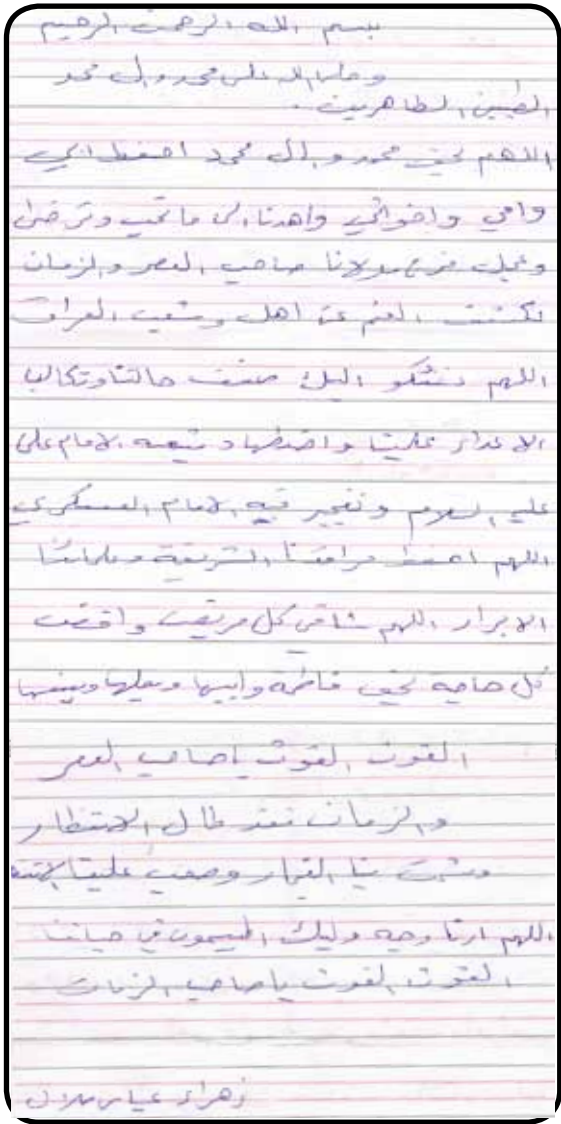 بسم الله الرحمن الرحيم
وصلى الله على محمد وال محمد
الطيبين الطاهرين .
اللهم بحق محمد و ال محمد احفظ ابي
وامي واخواني واهدنا الى ما تحب وترضى
وعجل فرج مولانا صاحب العصر والزمان
لكشف الغم عن اهل وشعب العراق
اللهم نشكو اليك ضعف حالنا وتكالب
الاعداء علينا واضطهاد شيعه الامام علي
عليه السلام وتفجير قبه الامام العسكري
اللهم احفظ مراقدنا الشريفة وعلمائنا
الابرار اللهم شافي كل مريض واقضت
كل حاجه بحق فاطمة وابيها وبعلها وبنيها
الغوث الغوث ياصاحب العصر
والزمان فقد طال الانتظار
وشمت بنا الفجار وصعب علينا
اللهم ارنا وجه وليك الميمون في حياتنا
الغوث الغوث ياصاحب الزمان
زهراء عباس